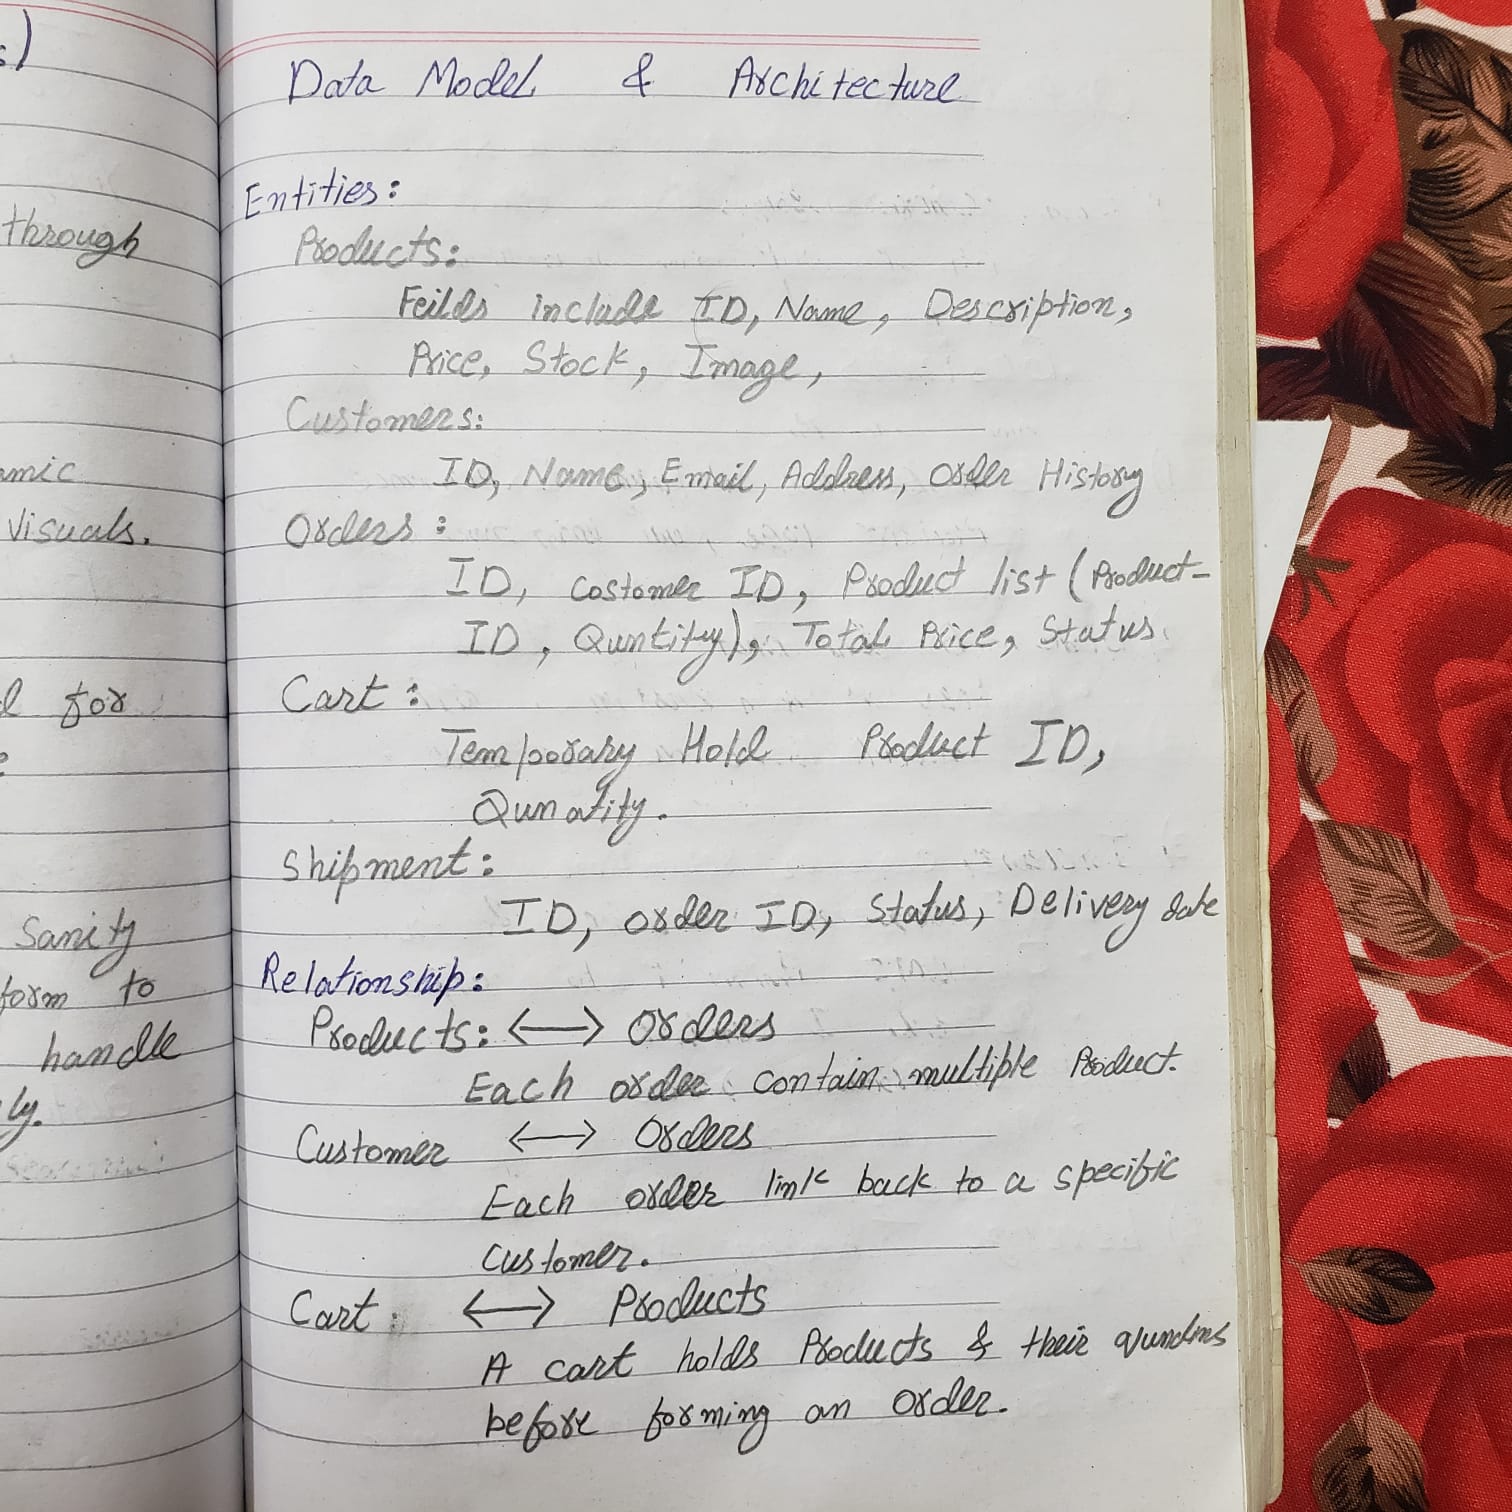 s)
through
amic
visuals.
for
Sanity
form to
handle
ly.
Data Model & Architecture
Entities:
Products:
Feilds include ID, Name, Description,
Price, Stock, Image,
Customers:
ID, Name, Email, Address, Order History
Orders :
ID, Costomer ID, Product list (Product-
ID, Quntity), Total Price, Status
Cart :
Temporary Hold Product ID,
Qunatity.
Shipment:
ID, order ID, Status, Delivery date
Relationship:
Products: <—> Orders
Each order contain multiple Product.
Customer <—> Orders
Each order link back to a specific
Customer.
Cart <—> Products
A cart holds Products & their
before forming an Order.